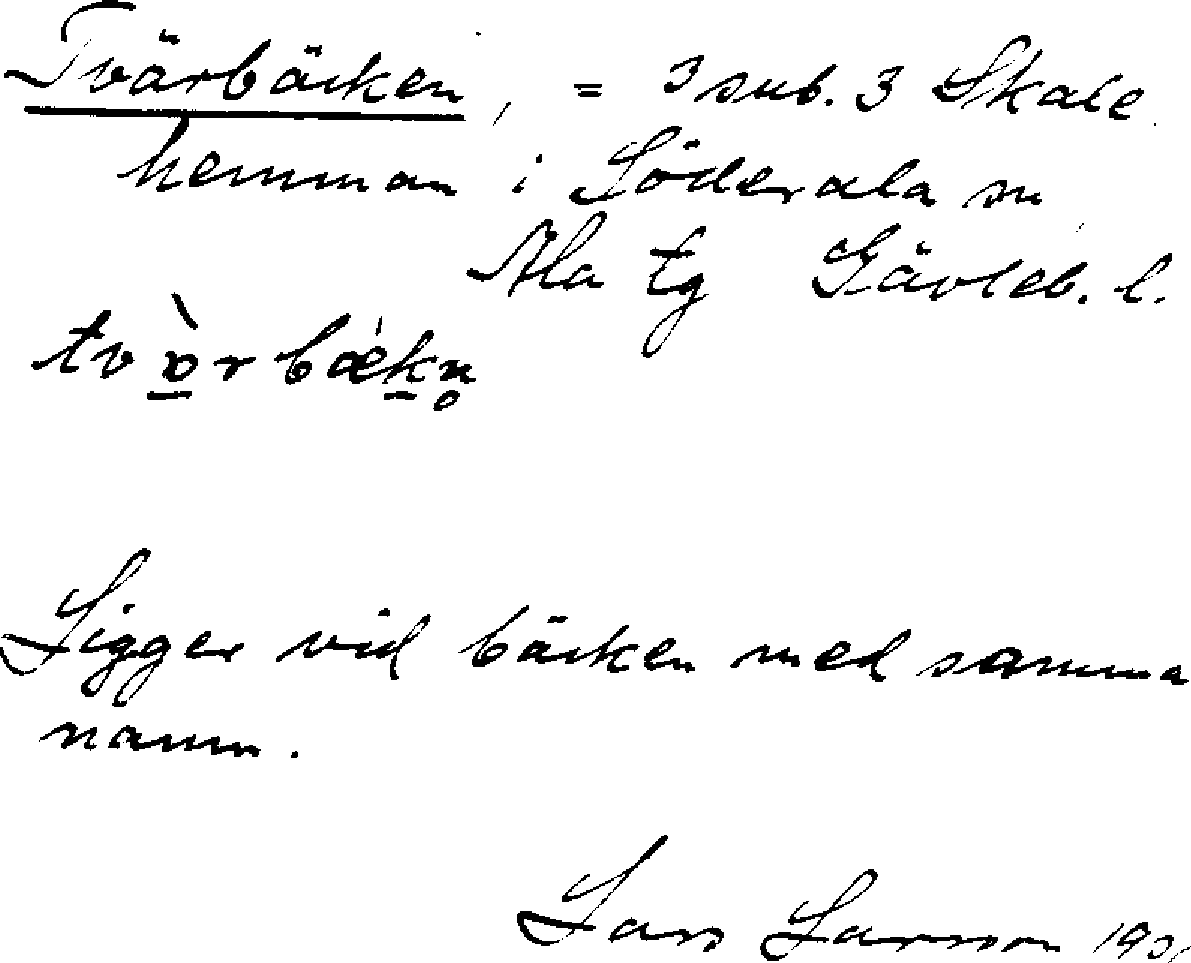 Tvärbäcken, = 3 sub. 3 Skate
hemman i Söderala sn
Ala tg Gävleb. l.
tvò̱rbǽ​ḵn̥
Ligger vid bäcken med samma
namn.
Lars Larsson